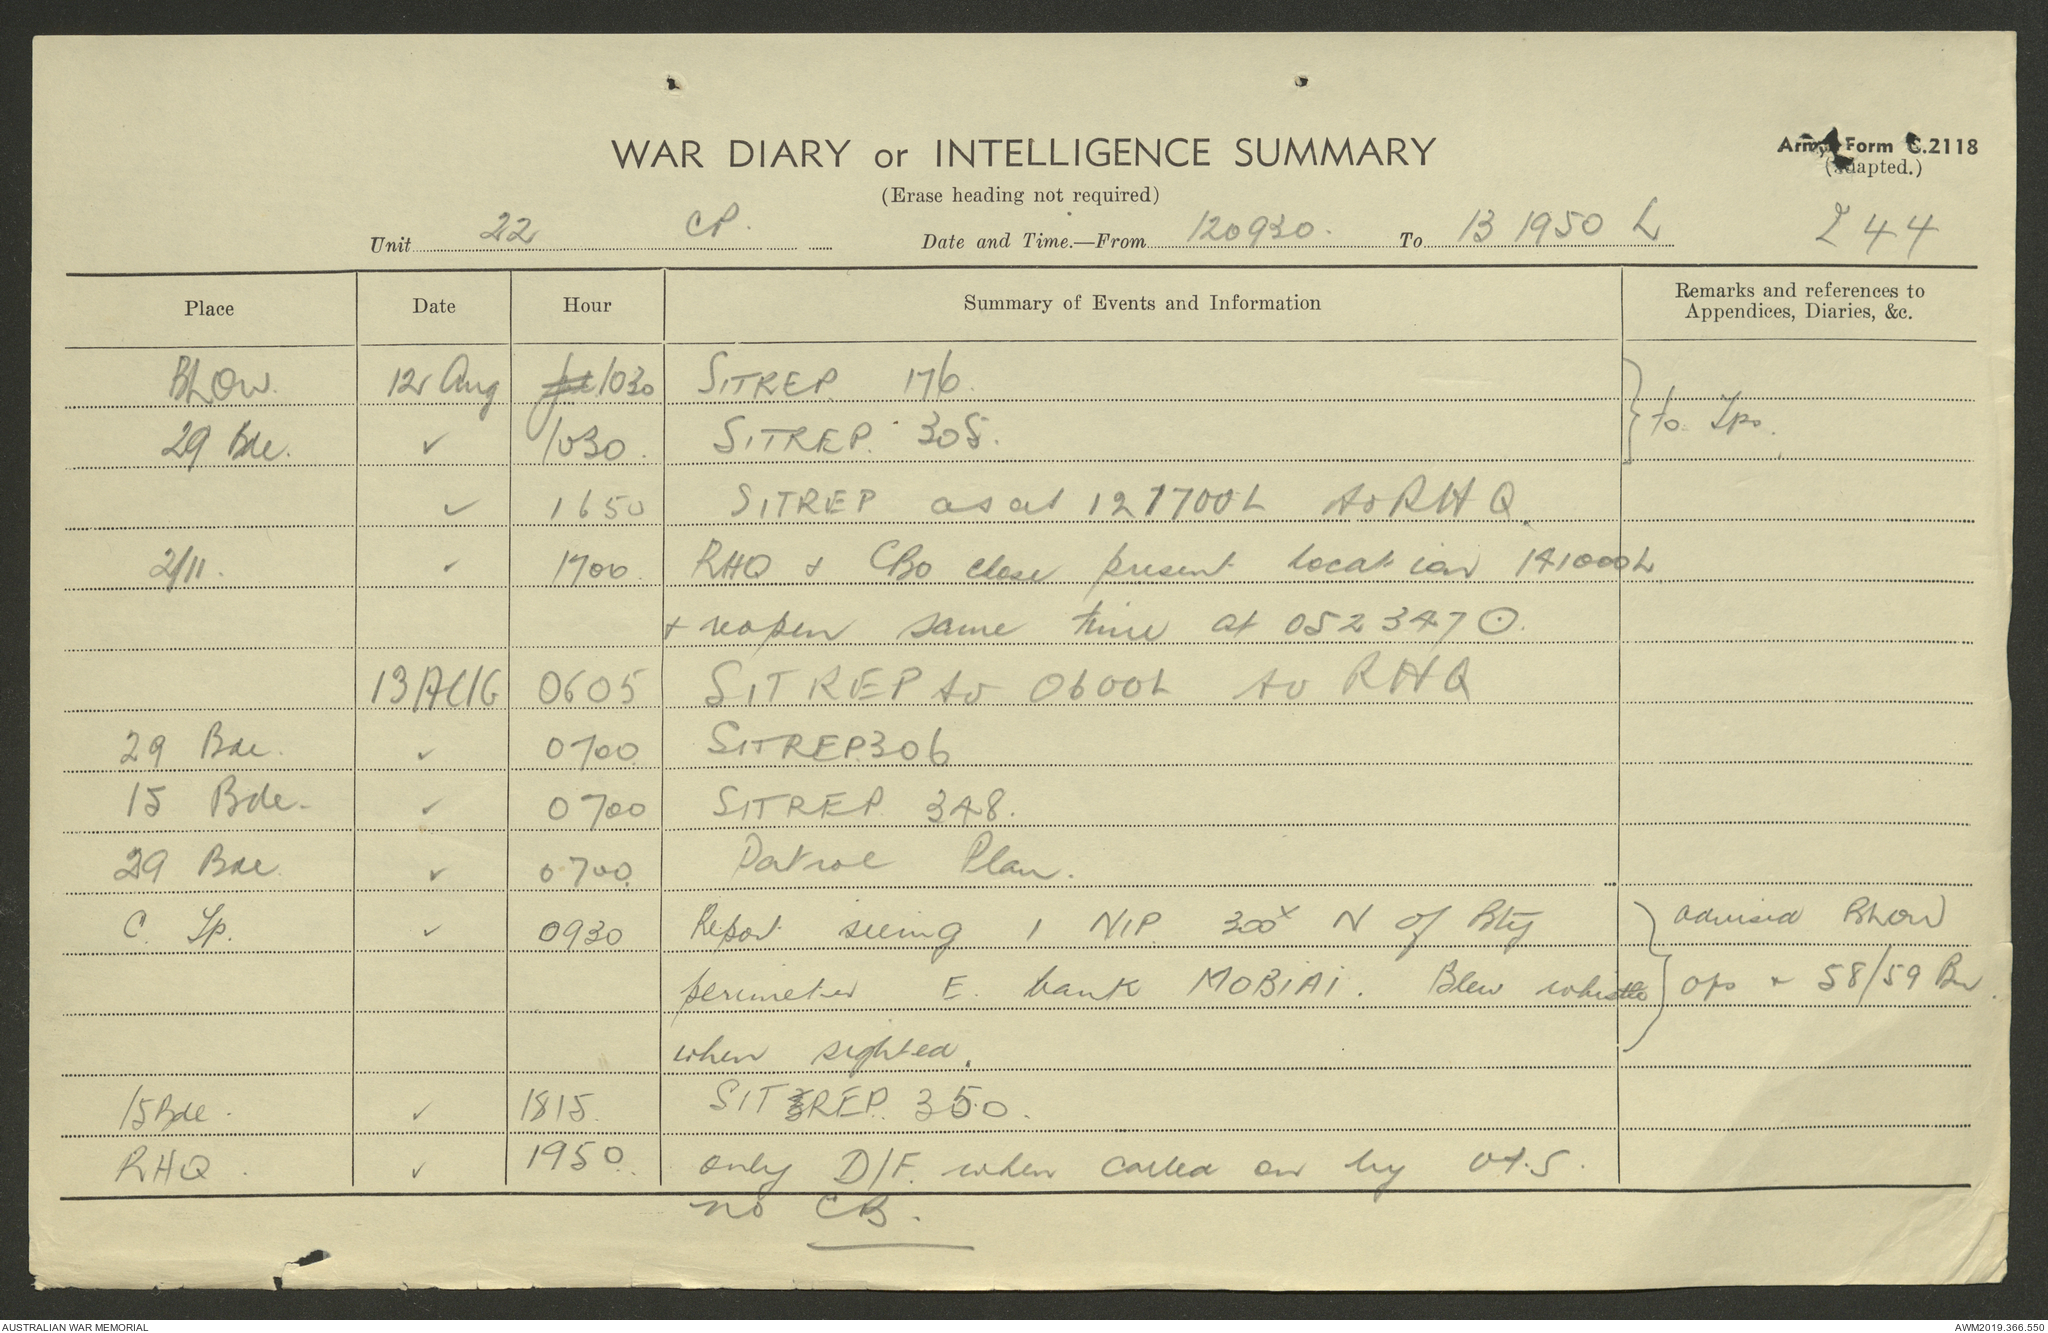 WAR DIARY or INTELLIGENCE SUMMARY
Army Form C.2118
(Erase heading not required)
(adapted.)
Unit 22 CP. Date and Time.—From 120930. To 13 1950 L 44
Place Date Hour Summary of Events and Information Remarks and references to
Appendices, Diaries, &c.
BLOW. 12 Aug 1030 SITREP 176.
29 Bde. ✓ 1030. SITREP. 305. to Tps.
✓ 1650 SITREP as at 121700L to RHQ.
2/11. ✓ 1700. RHQ + CBO close present location 141000L
+ reopen same time at 052347 ⊙.
13 AUG 0605 SITREP to 0600L to RHQ
29 Bde. ✓ 0700. SITREP.306
15 Bde. ✓ 0700 SITREP 348.
29 Bde ✓ 0700. Patrol Plan.
C. Tp. ✓ 0930 Report seeing 1 NIP. 300x N of Bty advised BLOW
perimeter E. bank MOBIAI. Blew whistle Ops + 58/59 Bn.
when sighted.
15 Bde. ✓ 1815. SITREP. 350.
RHQ. ✓ 1950. only D/F. when called on by
no CB.
AUSTRALIAN WAR MEMORIAL
AWM2019.366.550